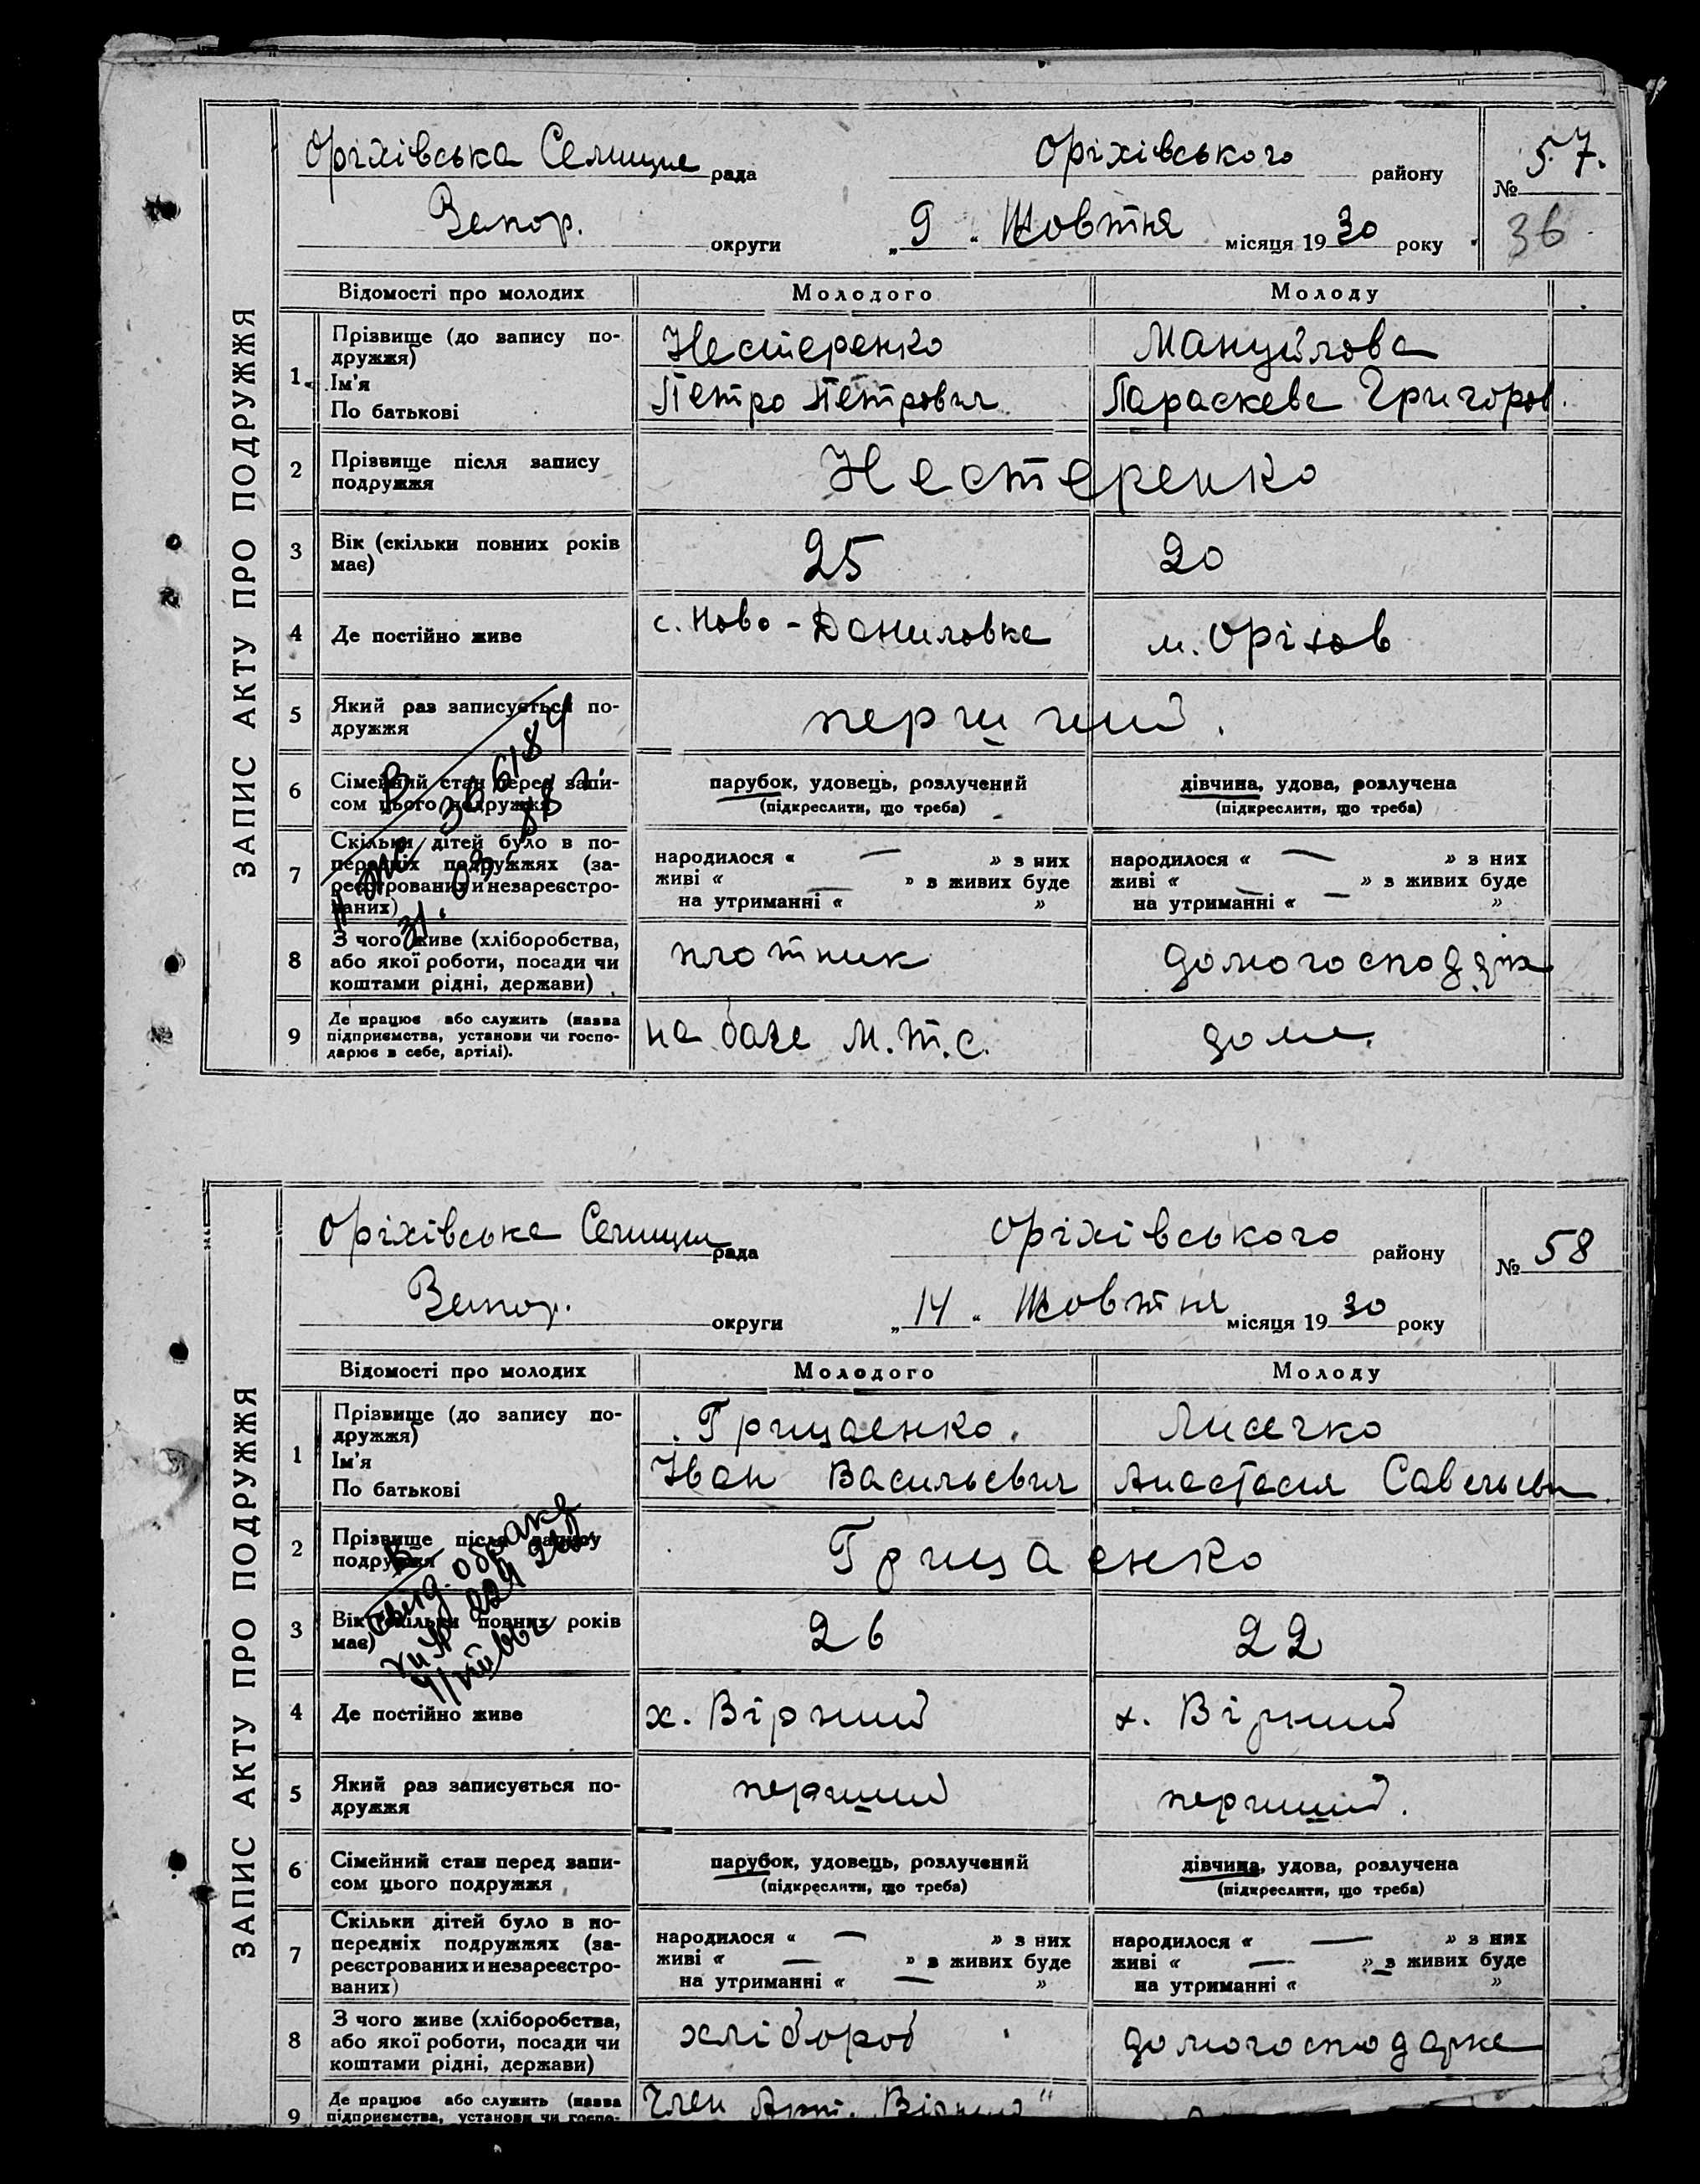 ЗАПИС АКТУ ПРО ПОДРУЖЖЯ
Оріхівська Селищне рада Оріхівського району № 57.
Запор. округи „9“ Жовтня місяця 1930 року 36
Відомості про молодих Молодого Молоду
1. Прізвище (до запису по-
дружжя) Нестеренко Мануйлова
Ім'я
По батькові Петро Петрович Параскева Григоров.
2 Прізвище після запису
подружжя Нестеренко
3 Вік (скільки повних років
має) 25 20
4 Де постійно живе с. Ново-Даниловка м. Оріхов
5 Який раз записується по-
дружжя перший.
6 Сімейний стан перед запи-
сом цього подружжя
парубок, удовець, розлучений дівчина, удова, розлучена
(підкреслити, що треба) (підкреслити, що треба)
7 Скільки дітей було в по-
передніх подружжях (за-
реєстрованих и незареєстро-
ваних)
народилося « — » з них народилося « — » з них
живі « — » з живих буде живі « — » з живих буде
на утриманні « » на утриманні « — »
8 З чого живе (хліборобства,
або якої роботи, посади чи
коштами рідні, держави) плотник
9 Де працює або служить (назва
підприємства, установи чи госпо-
дарює в себе, артілі). на базе М.Т.С. дома.
ЗАПИС АКТУ ПРО ПОДРУЖЖЯ
Оріхівське Селищн рада Оріхівського району № 58
Запор. округи „14“ Жовтня місяця 1930 року
Відомості про молодих Молодого Молоду
1 Прізвище (до запису по-
дружжя) Грицаенко. Лисечко
Ім'я
По батькові Іван Васильевич Анастасия Савельевн.
2 Прізвище після запису
подружжя Грицаенко
3 Вік (скільки повних років
має) 26 22
4 Де постійно живе х. Вірний х. Вірний
5 Який раз записується по-
дружжя перший перший.
6 Сімейний стан перед запи-
сом цього подружжя
парубок, удовець, розлучений дівчина, удова, розлучена
(підкреслити, що треба) (підкреслити, що треба)
7 Скільки дітей було в по-
передніх подружжях (за-
реєстрованих и незареєстро-
ваних)
народилося « — » з них народилося « — » з них
живі « — » з живих буде живі « — » з живих буде
на утриманні « — » на утриманні « »
8 З чого живе (хліборобства,
або якої роботи, посади чи
коштами рідні, держави) хлібороб домогосподарке
9 Де працює або служить (назва
підприємства, установи чи госпо- Член Арт.